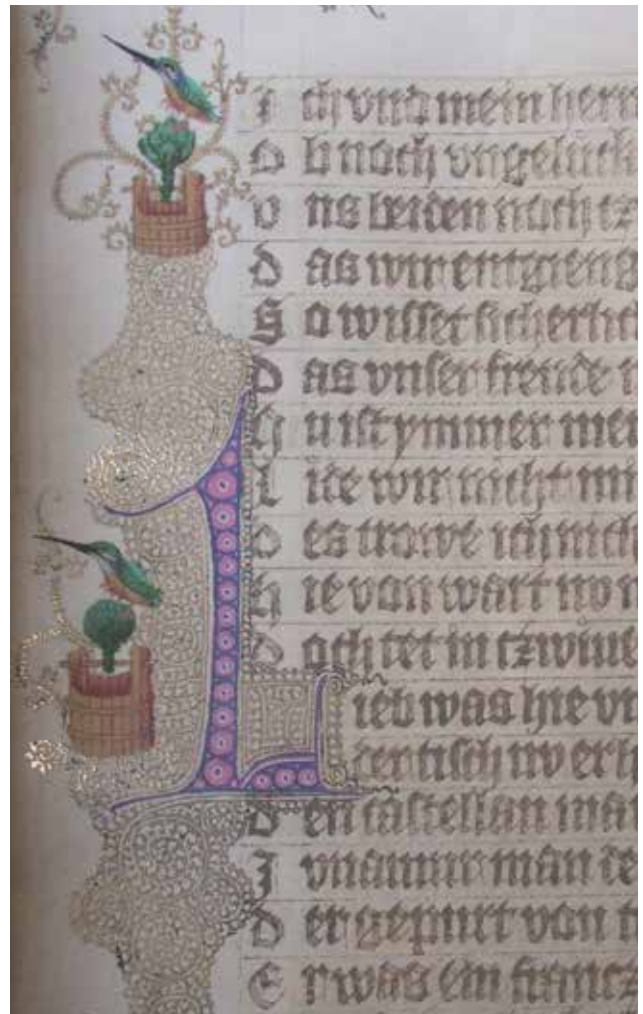 i ch vnd mein herr
O b noch vngeluck
v ns beiden noch tz
d as wir entgieng
S o wisset sicherlic
D as vnser freude
N u ist ymmer mer
L ide wir nicht mi
D es trowe ich nich
h ie van wart
D och tet in tzwiue
L ieb was hie vn
d en castellan man
I vnamur man de
D er gepurt von
E r was ein frantz